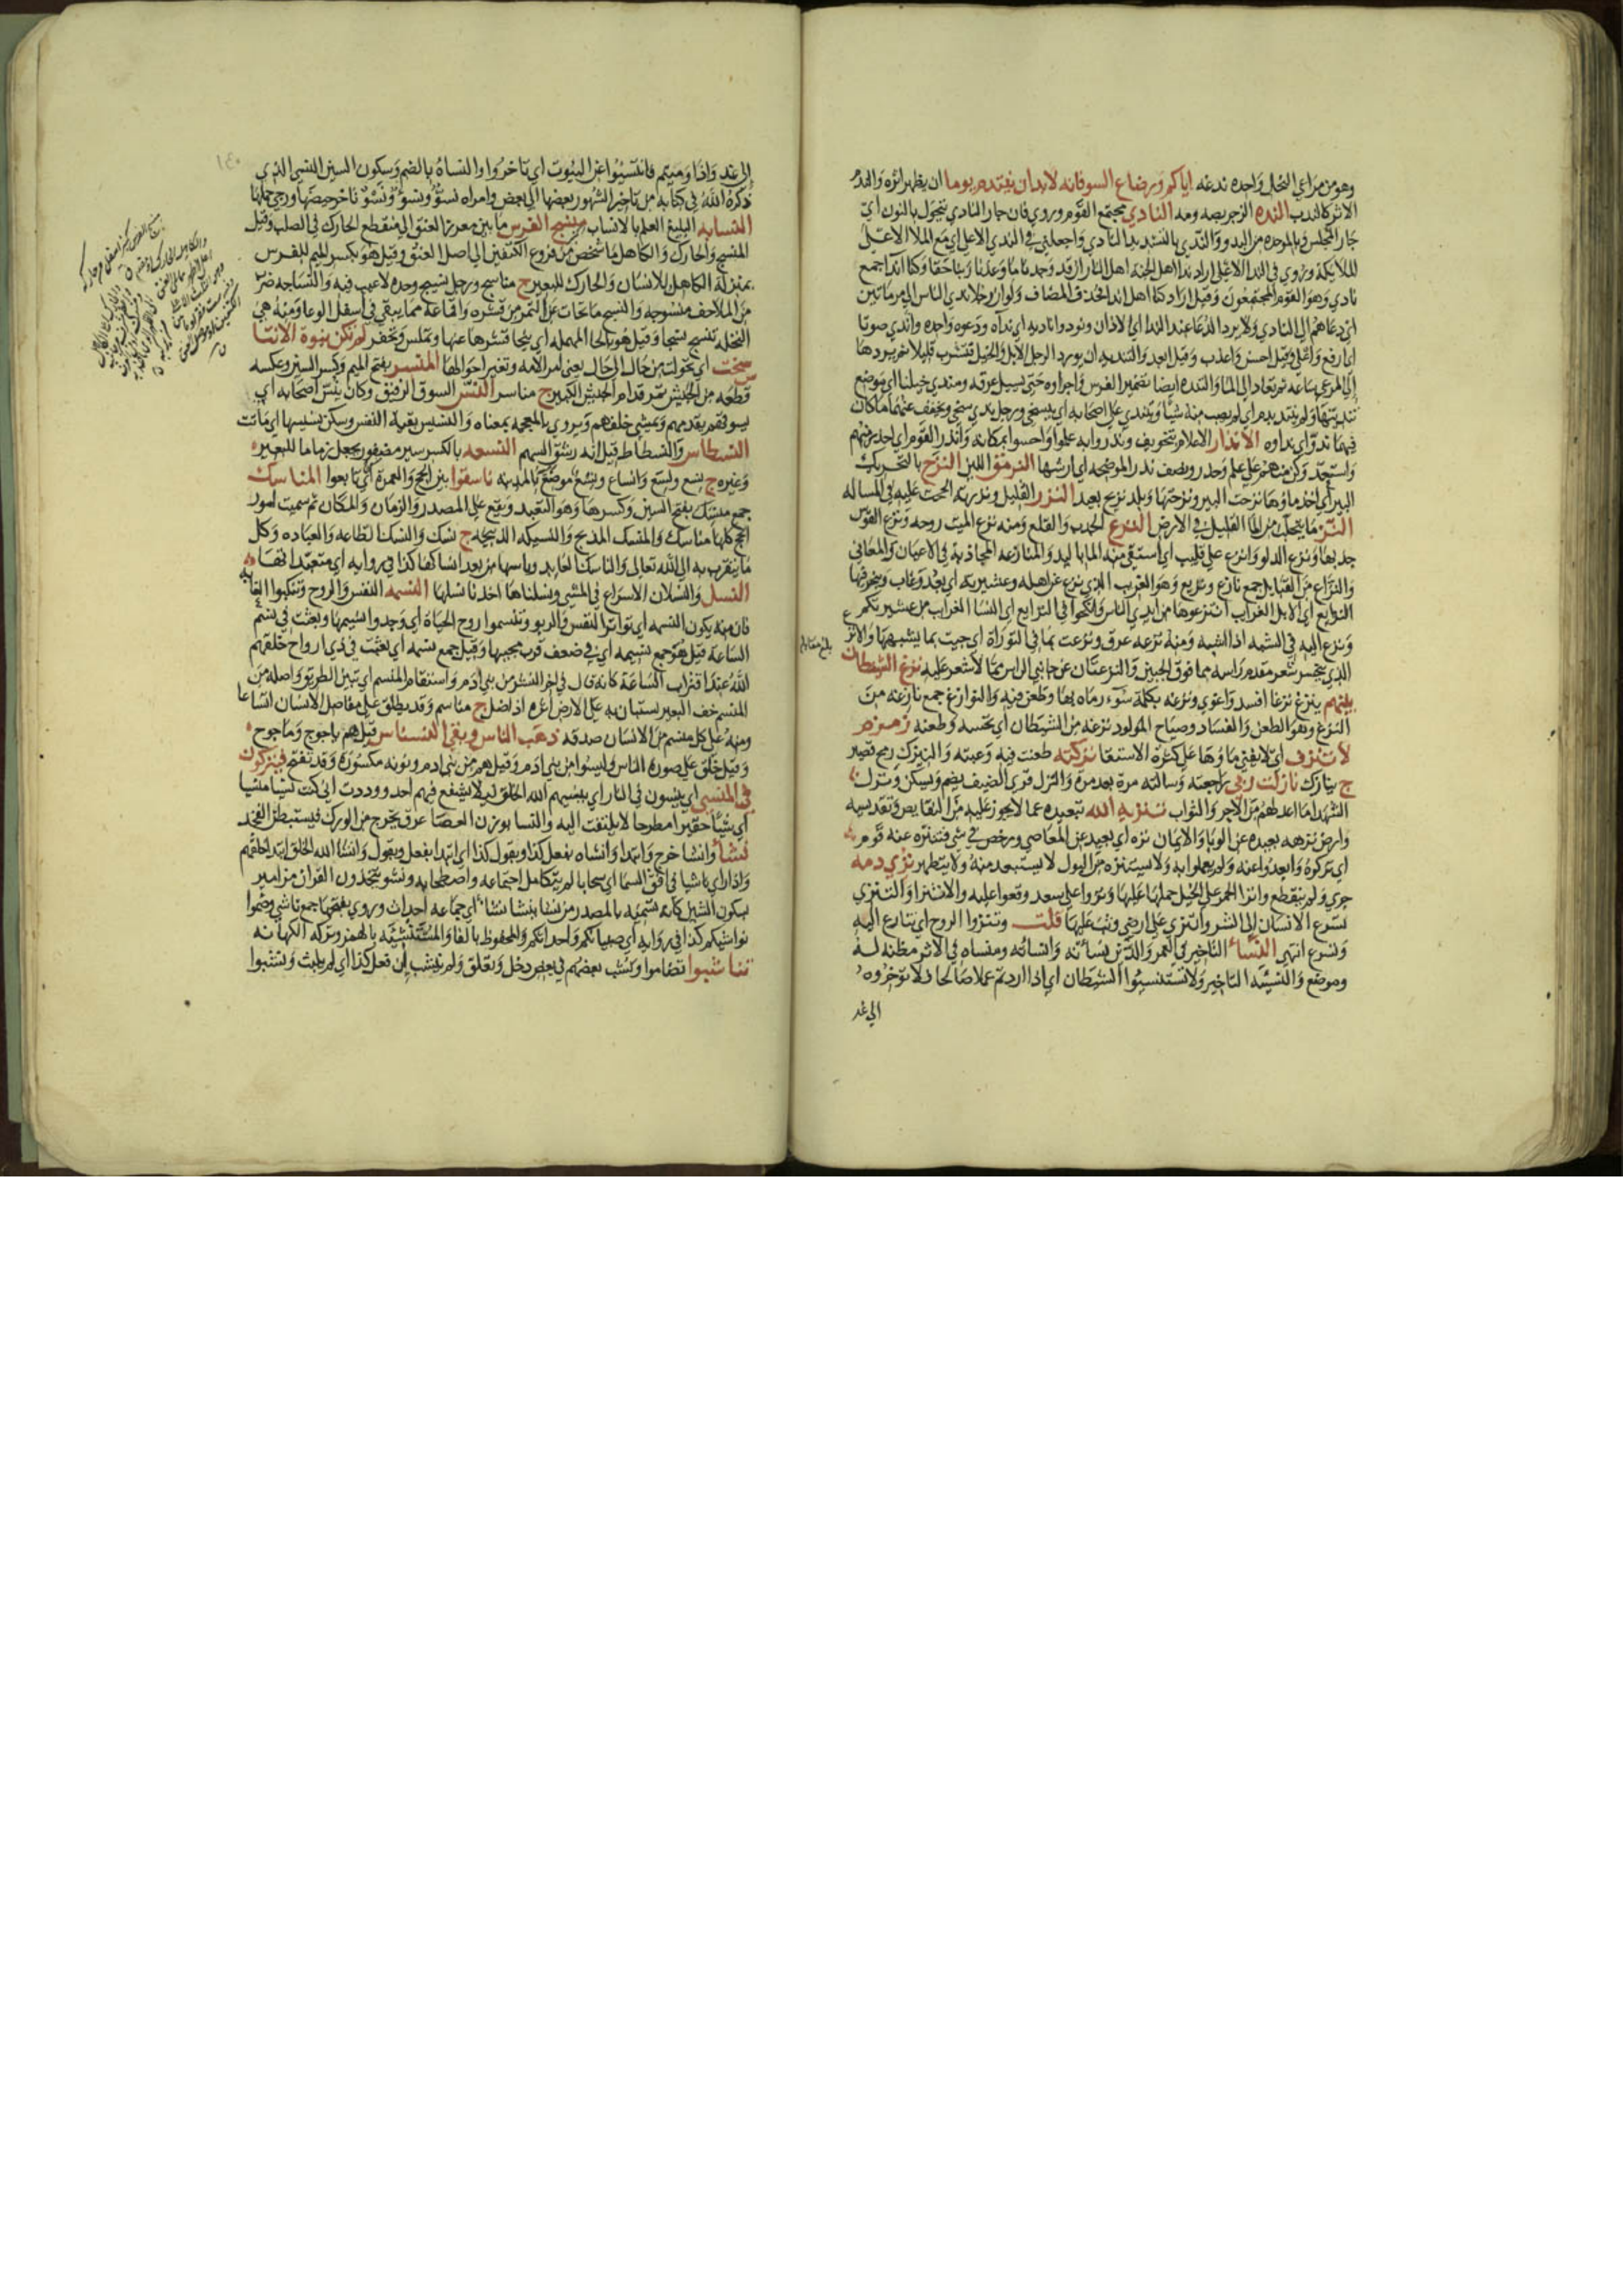 وهو من مراعي النحل واحده ندغه اياكم ورضاع السو فانه لابد ان ينتدم يوما ان يظهر اثره والندم
الاثر كالندب النده الزجر بصه ومه النادي مجتمع القوم وروي فان جار النادي يتحول بالنون اي
جار المجلس وبالموحده من البدو والندي بالتشديد النادي واجعلني في الندي الاعلى اي مع الملا الاعلى
للملايكة وروي في الندا الاعلى اراد ندا اهل الجنة اهل النار ان قد وجدنا ما وعدنا ربنا حقا وكنا اندا جمع
نادي وهو القوم المجتمعون وقيل اراد كنا اهل اندا فحذف المضاف ولو ان رجلا ندي الناس الى مرماتين
اي دعاهم الى النادي ولا يرد الدعا عند الندا اي الاذان ونودوا ناديه اي نداه ودعوه واحده واندي صوتا
اي ارفع واعلى وقيل احسن واعذب وقيل ابعد والتنديه ان يورد الرجل الابل والخيل فتشرب قليلا ثم يردها
الى المرعى ساعه ثم تعاد الى الما والتنديه ايضا تضمير الفرس واجراوه حتى يسيل عرقه ومندي خيلنا اي موضع
تنديتها ولم يتند بدم اي لم يصب منه شيا ويتندي على اصحابه اي يتسخى ورجل ندي سخي ويخفف عنهما ما كان
فيهما ندو اي نداوه الانذار الاعلام بتخويف ونذروا به علموا واحسوا بمكانه وانذر القوم اي احذر منهم
واستعد وكن منهم على علم وحذر ونصف نذر الموضحه اي ارشها النرمق اللين النزح بالتحريك
البير اي اخذ ماوها نزحت البير ونزحتها وبلد نزيح بعيد النزر القليل ونزرته الححت عليه في المساله
النز ما يتحلب من الما القليل في الارض النزع الجذب والقلع ومنه نزع الميت روحه ونزع القوس
جذبها ونزع الدلو وانزع على قليب اي استقي منه الما باليد والمنازعه المجاذبة في الاعيان والمعاني
والنزاع من القبايل جمع نازع ونزيع وهو الغريب الذي نزع عن اهله وعشيرته اي بعد وغاب
النزايع اي الابل الغرايب انتزعوها من ايدي الناس وانكحوا في النزايع اي النسا الغرايب من عشيرتكم
ونزع اليه في الشبه اذا اشبهه ومنه نزعه عرق ونزعت بما في التوراة اي جيت بما يشبهها والانزع
الذي ينحسر شعر مقدم راسه مما فوق الجبين والنزعتان عن جانبي الراس مما لا شعر عليه نزغ الشيطان
بينهم ينزغ نزغا افسد واغوي ونزغه بكلمة سوء رماه بها وطعن فيه والنوازغ جمع نازغه من
النزغ وهو الطعن والفساد وصياح المولود نزغه من الشيطان اي نخسه وطعنه زمزم
لا تنزف اي لا يفنى ماوها على كثرة الاستقا نزكته طعنت فيه وعبته والنيزك رمح قصير
ج نيازك نازلت ربي راجعته وسالته مرة بعد مرة والنزل قرى الضيف يضم ويسكن ونزل
الشهدا ما اعد لهم من الاجر والثواب تنزيه الله تبعيده عما لا يجوز عليه من النقايص وتقديسه
وارض نزهه بعيده عن الوبا والايمان نزه اي بعيد عن المعاصي ورخص في شي فتنزه عنه قوم
اي تركوه وابعدوا عنه ولم يعملوا به ولا يستنزه من البول لا يستبعد منه ولا يتطهر نزي دمه
جري ولم ينقطع وانزا الحمر على الخيل حملها عليها ونزوا على سعد وقعوا عليه والانتزا والتنزي
تسرع الانسان الى الشر وانتزي على ارضي وثب عليها قلت وتنزوا الروح اي تنازع اليه
وتسرع انتهى النسأ التاخير في العمر والدين نسأته وانسأته ومنساه في الاثر مظنة له
وموضع والنسيئه التاخير ولا تستنسئوا الشيطان اي اذا اردتم عملا صالحا فلا توخروه
الى غد
الى غد واذا رميتم فانتسئوا عن البيوت اي تاخروا والنساة بالضم وسكون السين النسي الذي
ذكره الله في كتابه من تاخير الشهور بعضها الى بعض وامراه نسو ونسو ونسو تاخر حيضها ورجي حملها
النسابه البليغ العلم بالانساب منسج الفرس ما بين مغرز العنق الى منقطع الحارك في الصلب وقيل
المنسج والحارك والكاهل ما شخص من فروع الكتفين الى اصل العنق وقيل هو بكسر الميم للفرس
بمنزلة الكاهل للانسان والحارك للبعير ج مناسج ورجل نسيج وحده لا عيب فيه والنساجه ضرب
من الملاحف منسوجه والنسح ما تحات عن التمر من قشره واقماعه مما يبقى في اسفل الوعا ومنه هي
النخله تنسح نسحا وقيل هو بالحا المهمله اي ينحا قشرها عنها وتملس وتحفر لم تكن نبوة الا تنا
سخت اي تحولت من حال الى حال يعني امر الامه وتغير احوالها المنسر بفتح الميم وكسر السين وعكسه
قطعه من الجيش تمر قدام الجيش الكبير ج مناسر النس السوق الرفيق وكان ينس اصحابه اي
يسوقهم يقدمهم ويمشي خلفهم ويروي بالمعجمه بمعناه والنسيس بقية النفس وسكن نسيسها اي ماتت
النسطاس والنسطاط قيل انه ريش السهم النسعه بالكسر سير مضفور يجعل زماما للبعير
وغيره ج نسع ونسع وانساع ونسع موضع بالمدينه ناسقوا بين الحج والعمرة اي تابعوا المناسك
جمع منسك بفتح السين وكسرها وهو التعبد ويقع على المصدر والزمان والمكان ثم سميت امور
الحج كلها مناسك والمنسك المذبح والنسيكه الذبيحه ج نسك والنسك الطاعه والعباده وكل
ما يتقرب به الى الله تعالى والناسك العابد
النسل والنسلان الاسراع في المشي ونسلناها اخذنا نسلها النسمه النفس والروح وتنكبوا الغبار
فان منه يكون النسمه اي تواتر النفس والربو وتنسموا روح الحياة اي وجدوا نسيمها وبعثت في نسم
الساعة قيل هو جمع نسيمه اي في ضعف قرب مجيها وقيل جمع نسمه اي بعثت في ذي ارواح خلقهم
الله عند اقتراب الساعة كانه قال في اخر النشو من بني ادم واستقام المنسم اي تبين الطريق واصله من
المنسم خف البعير يستبان به على الارض اثره اذا ضل ج مناسم وقد يطلق على مفاصل الانسان اتساعا
ومنه على كل منسم من الانسان صدقه ذهب الناس وبقى النسناس قيل هم ياجوج وماجوج
وقيل خلق على صورة الناس وليسوا من بني ادم وقيل هم من بني ادم ونونه مكسورة وقد تفتح فيتركون
في المنسي اي ينسون في النار اي ينسيهم الله الخلق ليلا يشفع فيهم احد ووددت اني كنت نسيا منسيا
اي شيئا حقيرا مطرحا لا يلتفت اليه والنسا بوزن العصا عرق يخرج من الورك فيستبطن الفخذ
نشأ وانشا خرج وابتدا وانشاه يفعل كذا ويقول كذا اي ابتدا يفعل ويقول وانشا الله الخلق ابتدا خلقهم
واذا راي ناشيا في افق السما اي سحابا لم يتكامل اجتماعه واصطحابه ونشو يتخذون القران مزامير
بسكون الشين كانه تسميه بالمصدر من نشا ينشا نشا اي جماعه احداث وروي بفتحها جمع ناشي وضموا
نواشيكم كذا في روايه اي صبيانكم واحداثكم والمحفوظ بالفا والمستنشيه بالهمز وتركه الكهانه
تناشبوا تضاموا ونشب بعضهم في بعض دخل وتعلق ولم ينشب ان فعل كذا اي لم يلبث